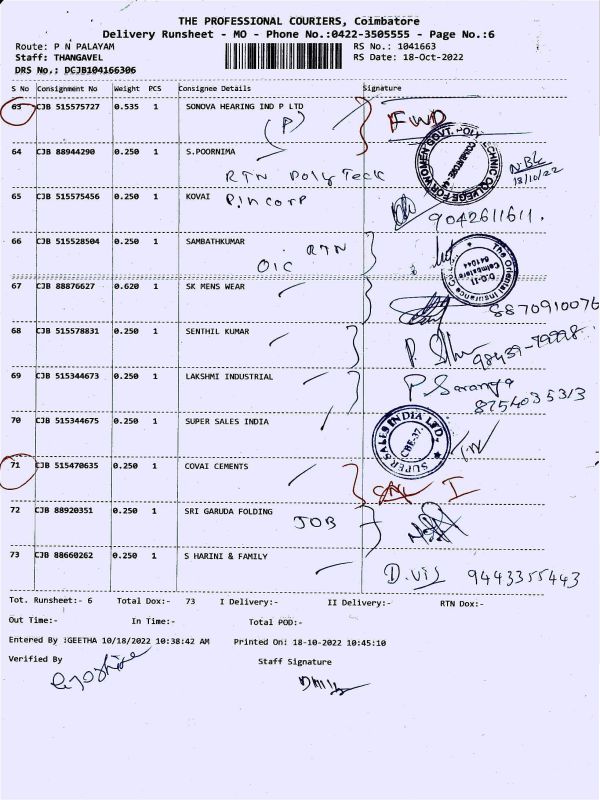 THE PROFESSIONAL COURIERS, Coimbatore
Delivery Runsheet - MO - Phone No.:0422-3505555 - Page No.:6
Route: P N PALAYAM
RS No.: 1041663
Staff: THANGAVEL
RS Date: 18-Oct-2022
DRS No.: DCJB104166306
S No Consignment No Weight PCS Consignee Details Signature
63 CJB 515575727 0.535 1 SONOVA HEARING IND P LTD
(P) FWD
64 CJB 88944290 0.250 1 S.POORNIMA
RTN Poly Teck
18/10/22
65 CJB 515575456 0.250 1 KOVAI
Pincorp 9042611611.
66 CJB 515528504 0.250 1 SAMBATHKUMAR
RTN
OIC
The Oriental Insurance
D.O-II
Coimbatore
641044
67 CJB 88876627 0.620 1 SK MENS WEAR
8870910076
68 CJB 515578831 0.250 1 SENTHIL KUMAR
69 CJB 515344673 0.250 1 LAKSHMI INDUSTRIAL
P. Saranya
8754035313
70 CJB 515344675 0.250 1 SUPER SALES INDIA
SUPER SALES INDIA LTD.
CBE-37.
71 CJB 515470635 0.250 1 COVAI CEMENTS
I
72 CJB 88920351 0.250 1 SRI GARUDA FOLDING
JOB
73 CJB 88660262 0.250 1 S HARINI & FAMILY
9443355443
Tot. Runsheet:- 6 Total Dox:- 73 I Delivery:- II Delivery:- RTN Dox:-
Out Time:- In Time:- Total POD:-
Entered By :GEETHA 10/18/2022 10:38:42 AM Printed On: 18-10-2022 10:45:10
Verified By Staff Signature